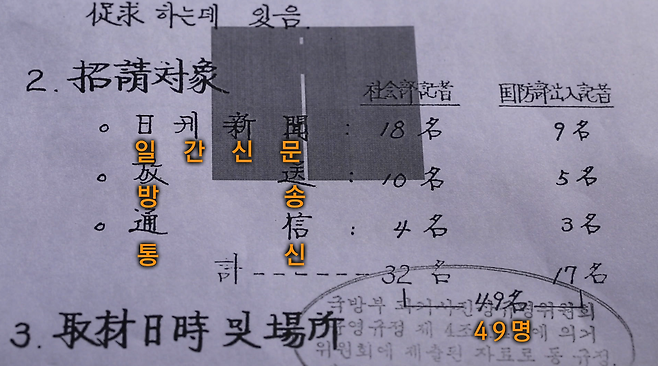 促求 하는데 있음.
2. 招請対象
社会部記者 国防部出入記者
o 日刊新聞 : 18名 9名
일간신문
o 放送 : 10名 5名
방송
o 通信 : 4名 3名
통신
計 ------ 32名 17名
49名
국방부 과거사진상규명위원회
운영규정 제 4조 에 의거
49명
위원회에 제출된 자료로 동 규정
3. 取材日時 및 場所